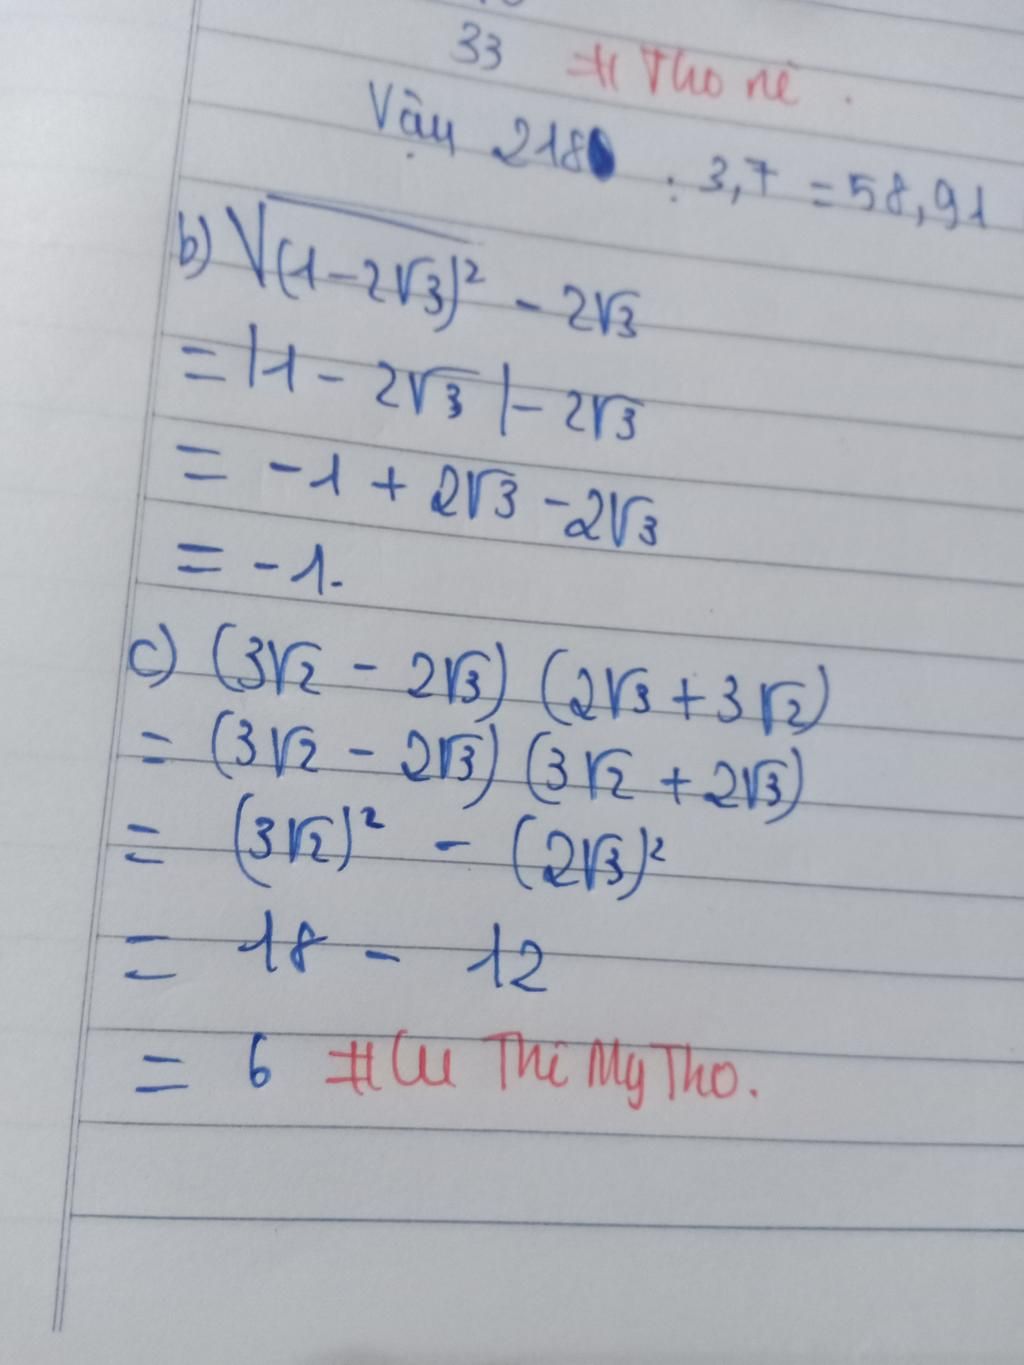 33 # Tho nè .
Vậy 218 : 3,7 = 58,91
b) √(1-2√3)² - 2√3
= |1 - 2√3| - 2√3
= -1 + 2√3 - 2√3
= -1.
c) (3√2 - 2√3) (2√3 + 3√2)
= (3√2 - 2√3) (3√2 + 2√3)
= (3√2)² - (2√3)²
= 18 - 12
= 6 # Cu Thi My Tho.